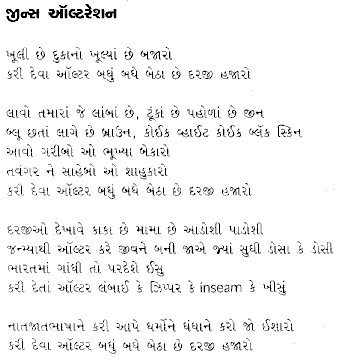 જીન્સ ઑલ્ટરેશન
ખૂલી છે દુકાનો ખૂલ્યાં છે બજારો
કરી દેવા ઑલ્ટર બધું બધે બેઠા છે દરજી હજારો
લાવો તમારાં જે લાંબાં છે, ટૂંકાં છે પહોળાં છે જીન
બ્લૂ છતાં લાગે છે બ્રાઉન, કોઈક વ્હાઈટ કોઈક બ્લૅક સ્કિન
આવો ગરીબો ઓ ભૂખ્યા બેકારો
તવંગર ને સાહેબો ઓ શાહુકારો
કરી દેવા ઑલ્ટર બધું બધે બેઠા છે દરજી હજારો
દરજીઓ દેખાવે કાકા છે મામા છે આડોશી પાડોશી
જન્મ્યાથી ઑલ્ટર કરે જીવને બની જાએ જ્યાં સુધી ડોસા કે ડોસી
ભારતમાં ગાંધી તો પરદેશે ઈસુ
કરી દેતાં ઑલ્ટર લંબાઈ કે ઝિપ્પર કે inseam કે ખીસું
નાતજાતભાષાને કરી આપે ધર્મોને ધંધાને કરો જો ઈશારો
કરી દેવા ઑલ્ટર બધું બધે બેઠા છે દરજી હજારો